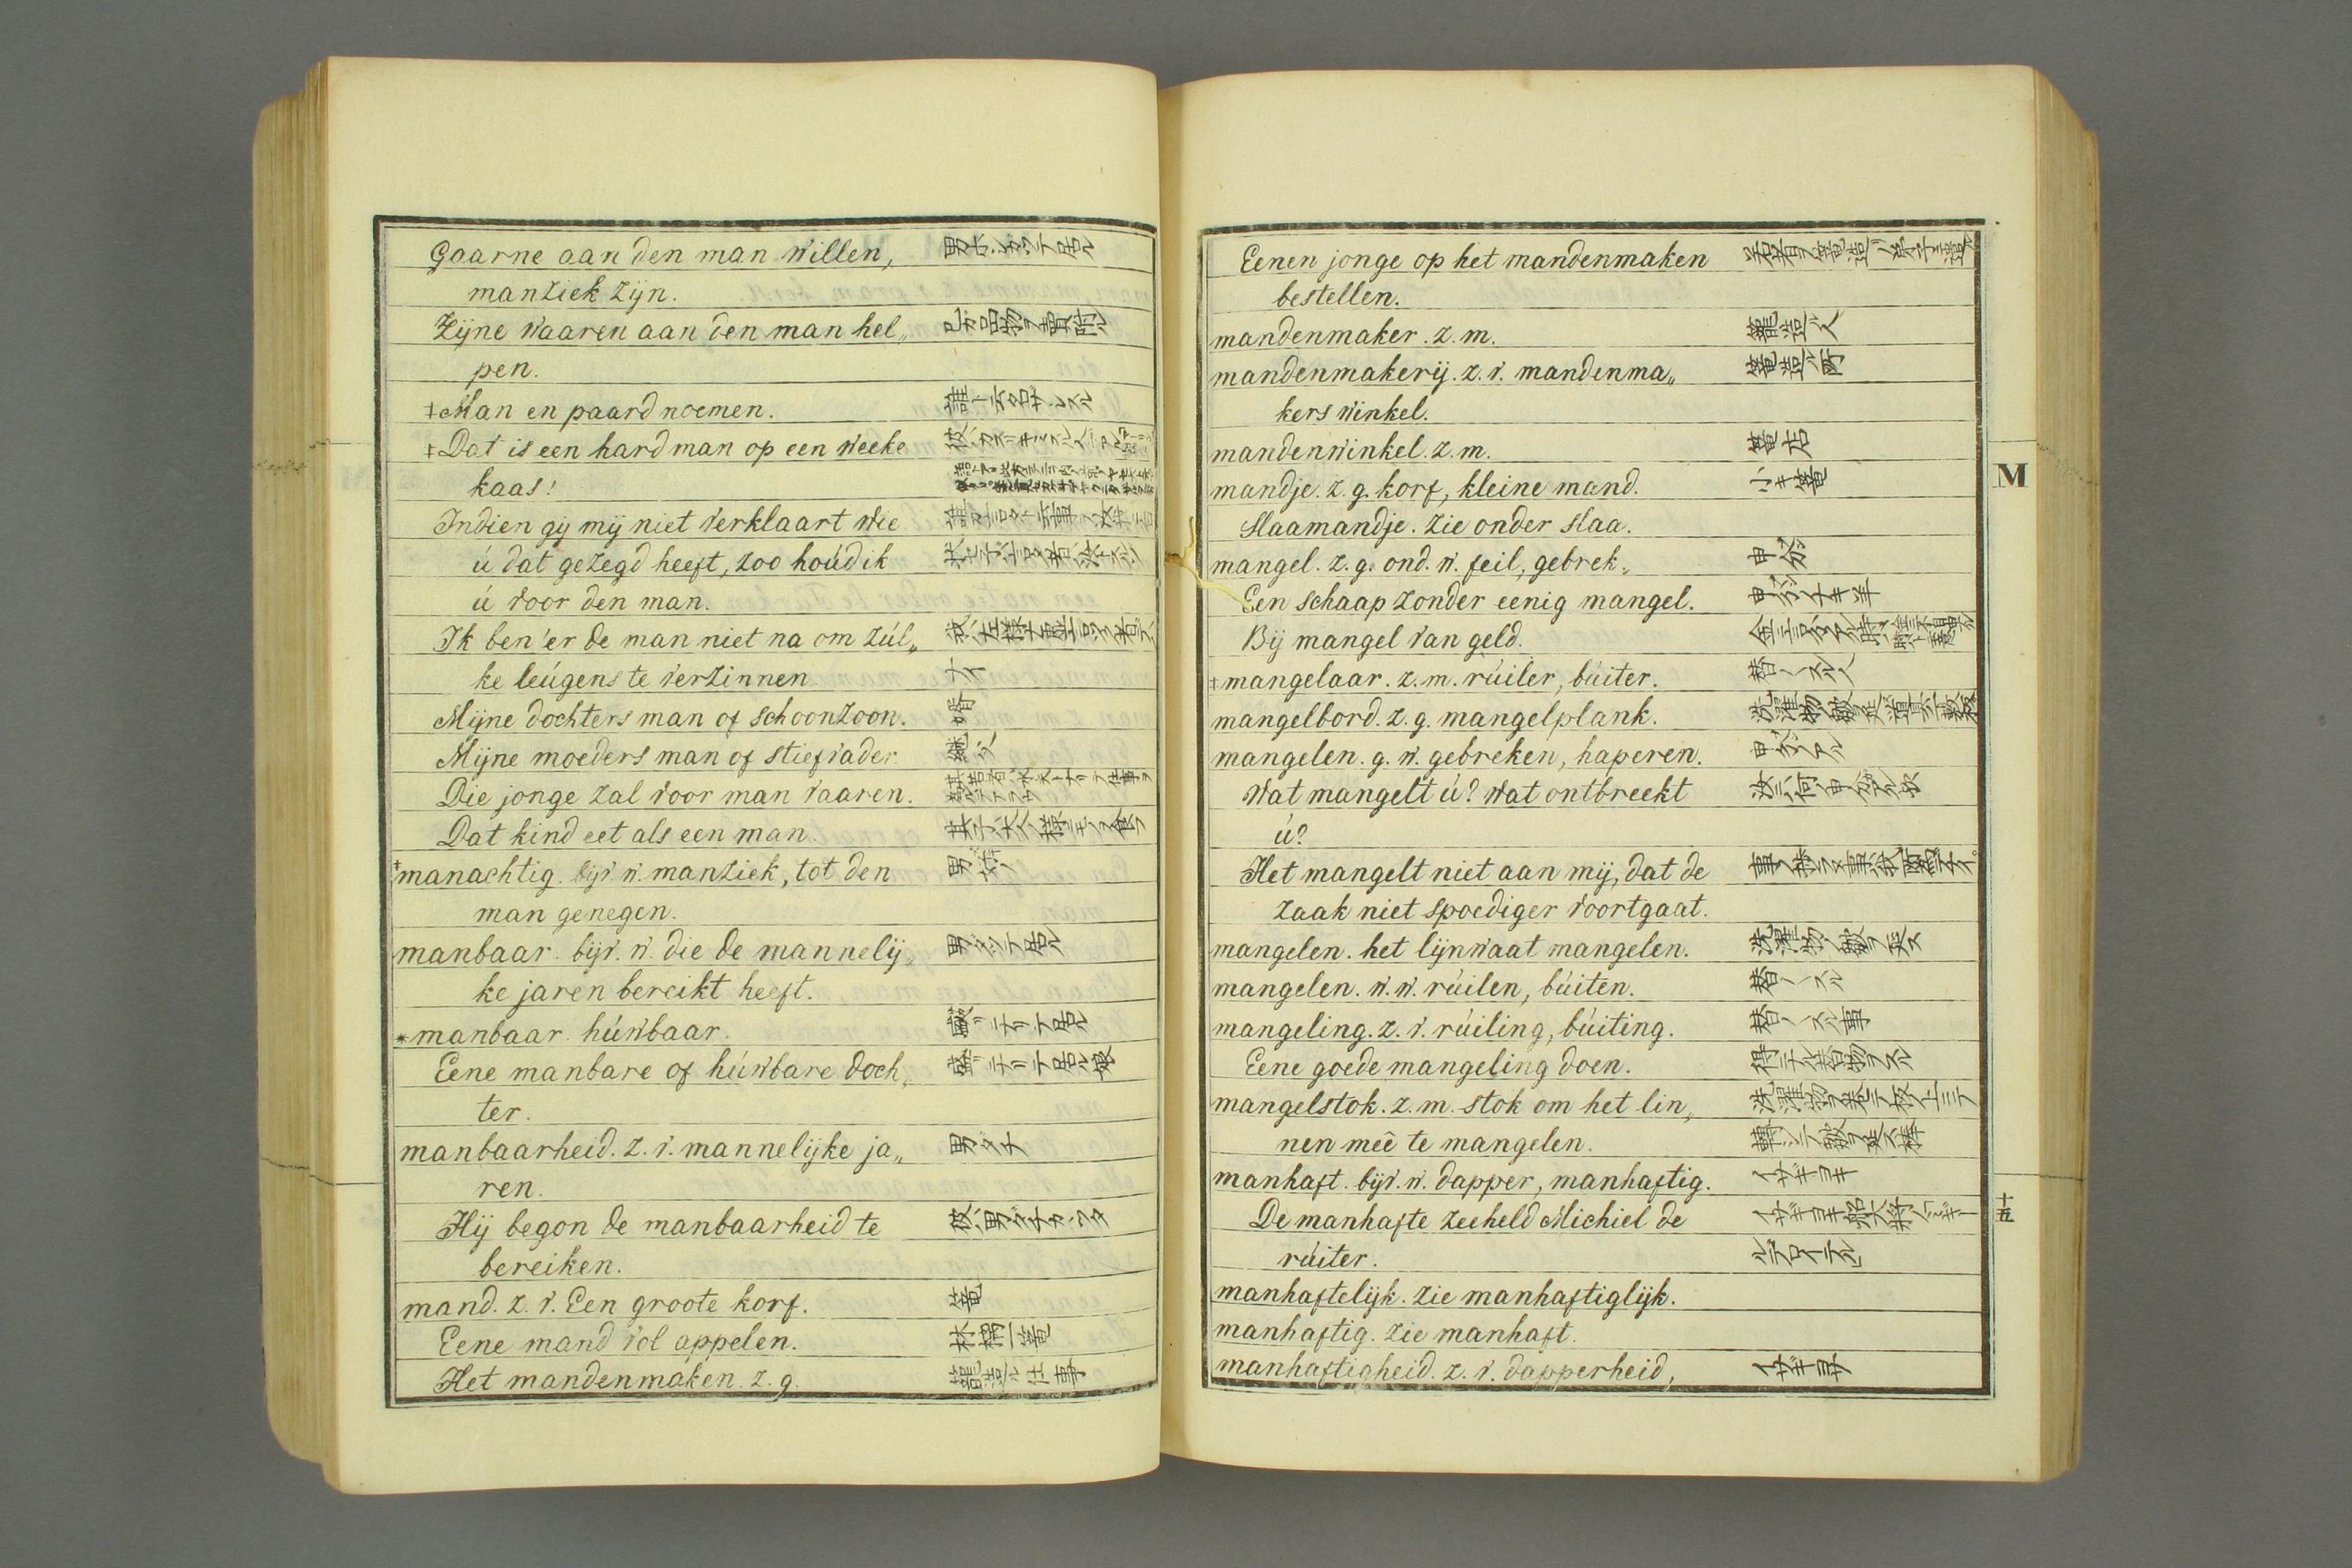 Gaarne aan den man willen, 男ホシガツテ居ル
manziek zijn.
Zijne waaren aan den man hel„ 己ガ品物ヲ賣附ル
pen.
‡Man en paard noemen. 誰ト云
‡Dat is een hard man op een weeke
kaas!
Indien gij mij niet verklaart wie
ú dat gezegd heeft, zoo hoúd ik
ú voor den man.
Ik ben 'er de man niet na om zúl„
ke leúgens te verzinnen ナイ
Mijne dochters man of schoonzoon. 婿
Mijne moeders man of stiefvader. 継父
Die jonge zal voor man vaaren.
Dat kind eet als een man.
‡manachtig. bijv. w. manziek, tot den 男好
man genegen.
manbaar. bijv. w. die de mannelij„ 男ダツテ居ル
ke jaren bereikt heeft.
*manbaar. húwbaar. 盛リテリテ居ル
Eene manbare of húwbare doch„ 盛リテリテ居ル娘
ter.
manbaarheid. z. v. mannelijke ja„ 男ダチ
ren.
Hij begon de manbaarheid te 彼ハ男ダチカヽツタ
bereiken.
mand. z. v. Een groote korf. 篭
Eene mand vol appelen. 林檎一篭
Het mandenmaken. z. g. 籠造ル仕事
Eenen jonge op het mandenmaken
bestellen.
mandenmaker. z. m. 籠造ル人
mandenmakerij. z. v. mandenma„ 篭造ル所
kers winkel.
mandenwinkel. z. m. 篭店
mandje. z. g. korf, kleine mand. 小キ篭
Slaamandje. zie onder slaa.
mangel. z. g. ond. w. feil, gebrek„ 申分
Een schaap zonder eenig mangel. 申分ナキ羊
Bij mangel van geld.
‡mangelaar. z. m. rúiler, búiter. 替ヘスル人
mangelbord. z. g. mangelplank.
mangelen. g. w. gebreken, haperen. 申分アル
Wat mangelt ú? wat ontbreekt 汝ニ何ノ申分アル歟
ú?
Het mangelt niet aan mij, dat de
zaak niet spoediger voortgaat.
mangelen. het lijnwaat mangelen. 洗濯物ノ皺ヲ延ス
mangelen. w. w. rúilen, búiten. 替ヘスル
mangeling. z. v. rúiling, búiting. 替ヘスル事
Eene goede mangeling doen.
mangelstok. z. m. stok om het lin„
nen meê te mangelen. 轉シテ皺ヲ延ス棒
manhaft. bijv. w. dapper, manhaftig. イサギヨキ
De manhafte zeeheld Michiel de
rúiter.
manhaftelijk. zie manhaftiglijk.
manhaftig. zie manhaft.
manhaftigheid. z. v. dapperheid, イサギヨサ
M
十五